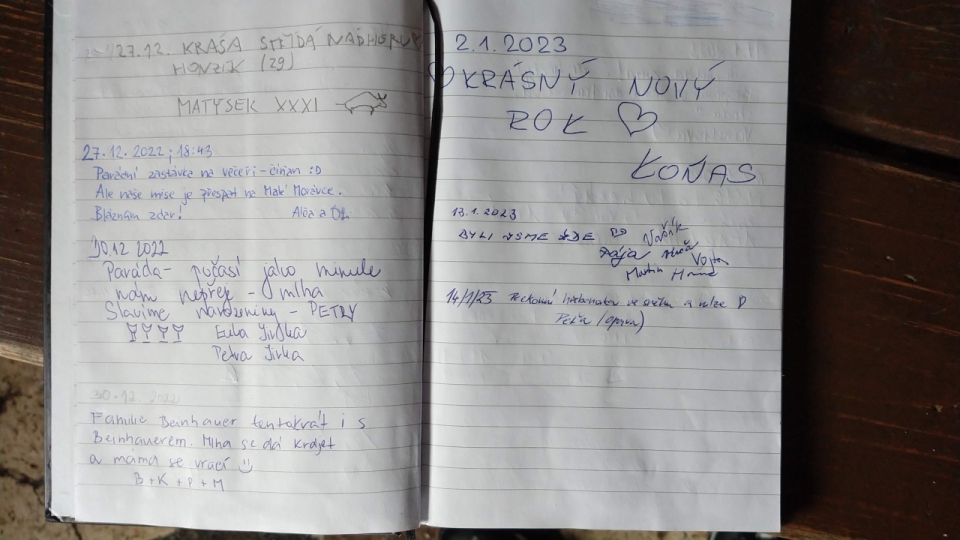 27.12. KRÁSA STŘÍDÁ NÁDHERU
HONZÍK (29)
MATYSEK XXXI
27.12.2022; 18:43
Parádní zastávka na večeři - čínan :D
Ale naše mise je přespat na Malé Morávce.
Bláznům zdar!
30.12 2022
Paráda - počasí jako minule
nám nepřeje - mlha
Slavíme narozeniny - PETRY
Jirka
Petra Jirka
30.12. 2022
Familie Beinhauer tentokrát i s
Beinhauerem. Mlha se dá krájet
a máma se vrací
B + K + P + M
2.1.2023
KRÁSNÝ NOVÝ
ROK
KOŇAS
13.1.2023
BYLI JSME ZDE
Vojta
Martin
14/1/23